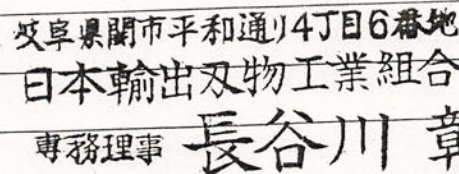 岐阜県関市平和通り4丁目6番地
日本輸出刃物工業組合
専務理事 長谷川 章